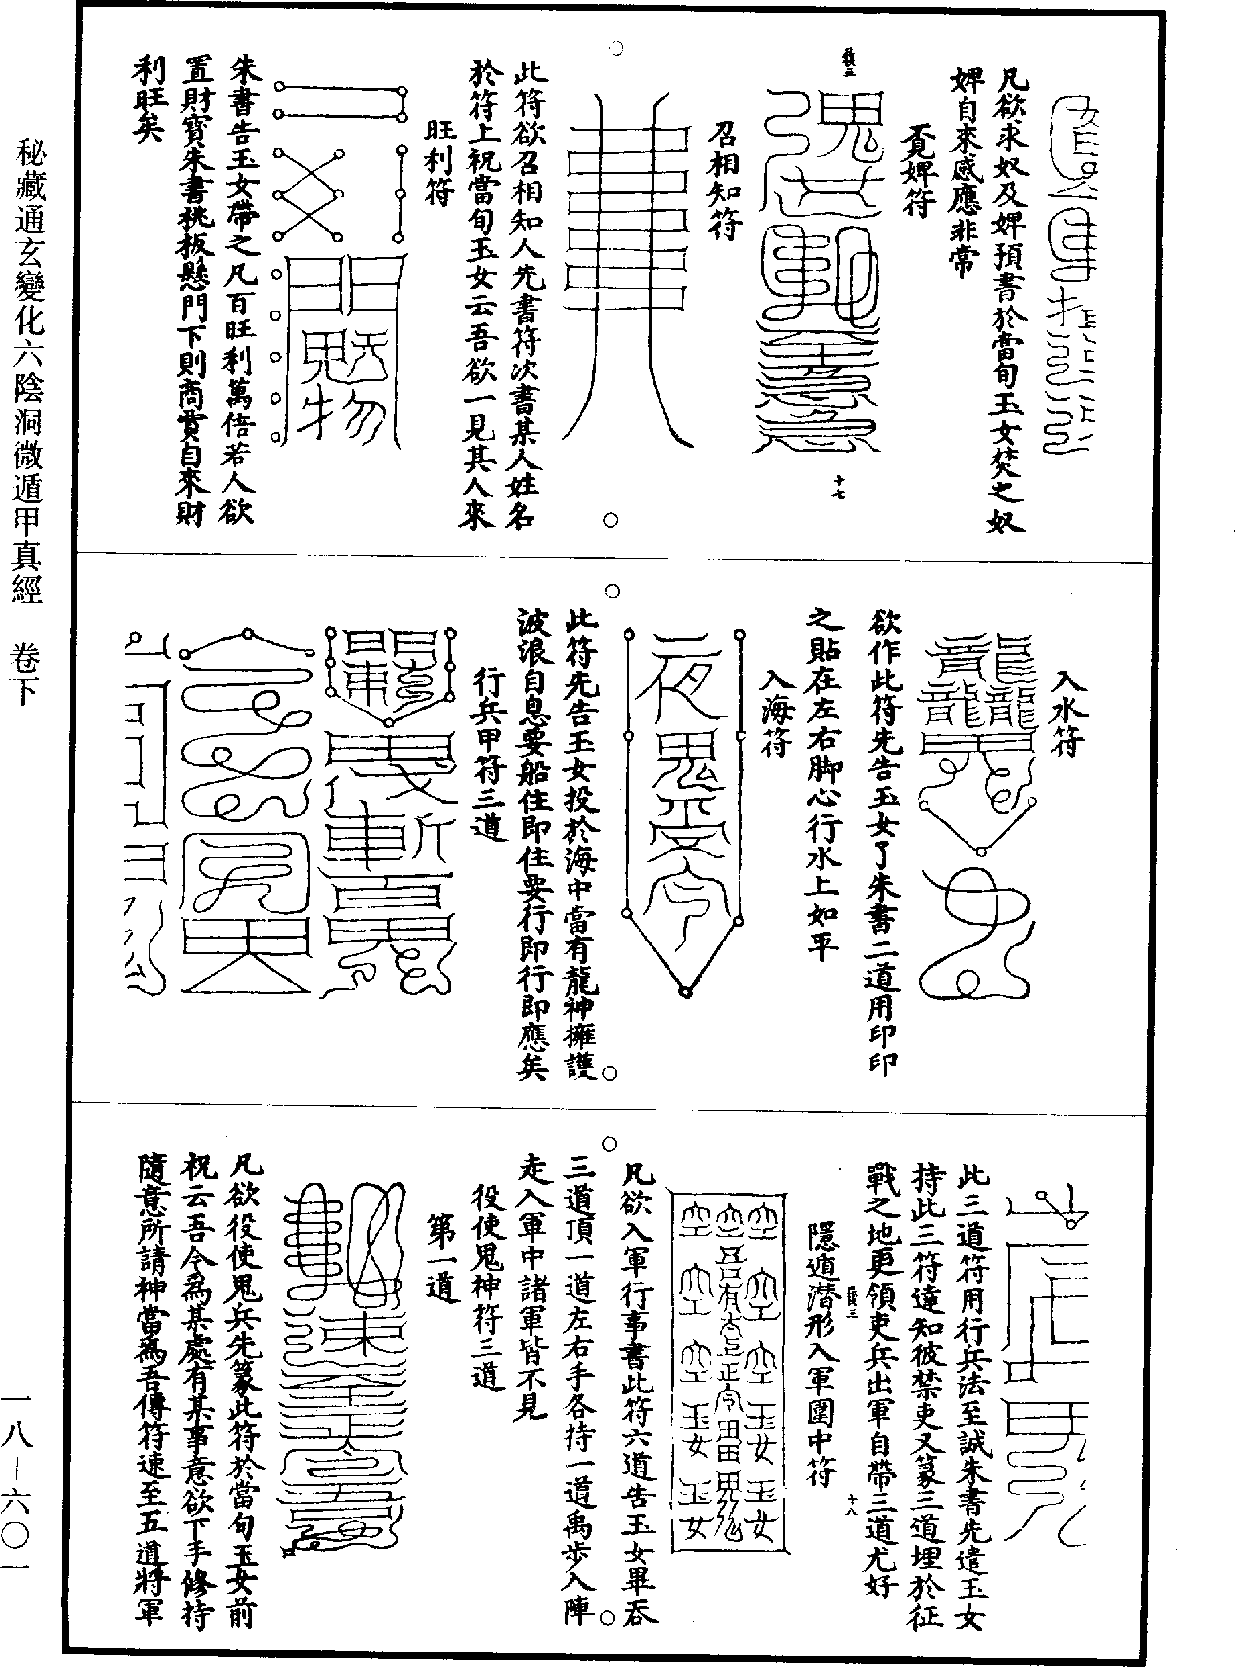 凡欲求奴及婢預書於當旬玉女焚之奴
婢自來感應非常
覓婢符
十七
召相知符
此符欲召相知人先書符次書某人姓名
於符上祝當旬玉女云吾欲一見其人來
旺利符
朱書告玉女帶之凡百旺利萬倍若人欲
置財寶朱書桃板懸門下則商賈自來財
利旺矣
入水符
欲作此符先告玉女了朱書二道用印印
之貼在左右脚心行水上如平
入海符
夜鬼
此符先告玉女投於海中當有龍神擁護
波浪自息要船住即住要行即行即應矣
行兵甲符三道
此三道符用行兵法至誠朱書先遣玉女
持此三符達知彼禁吏又篆三道埋於征
戰之地更領吏兵出軍自帶三道尤好
十八
隱遁潜形入軍圍中符
凡欲入軍行事書此符六道告玉女畢吞
三道頂一道左右手各持一道禹步入陣
走入軍中諸軍皆不見
役使鬼神符三道
第一道
凡欲役使鬼兵先篆此符於當旬玉女前
祝云吾今爲某處有某事意欲下手修持
隨意所請神當爲吾傳符速至五道將軍
秘藏通玄變化六陰洞微遁甲真經 卷下
一八－六〇一